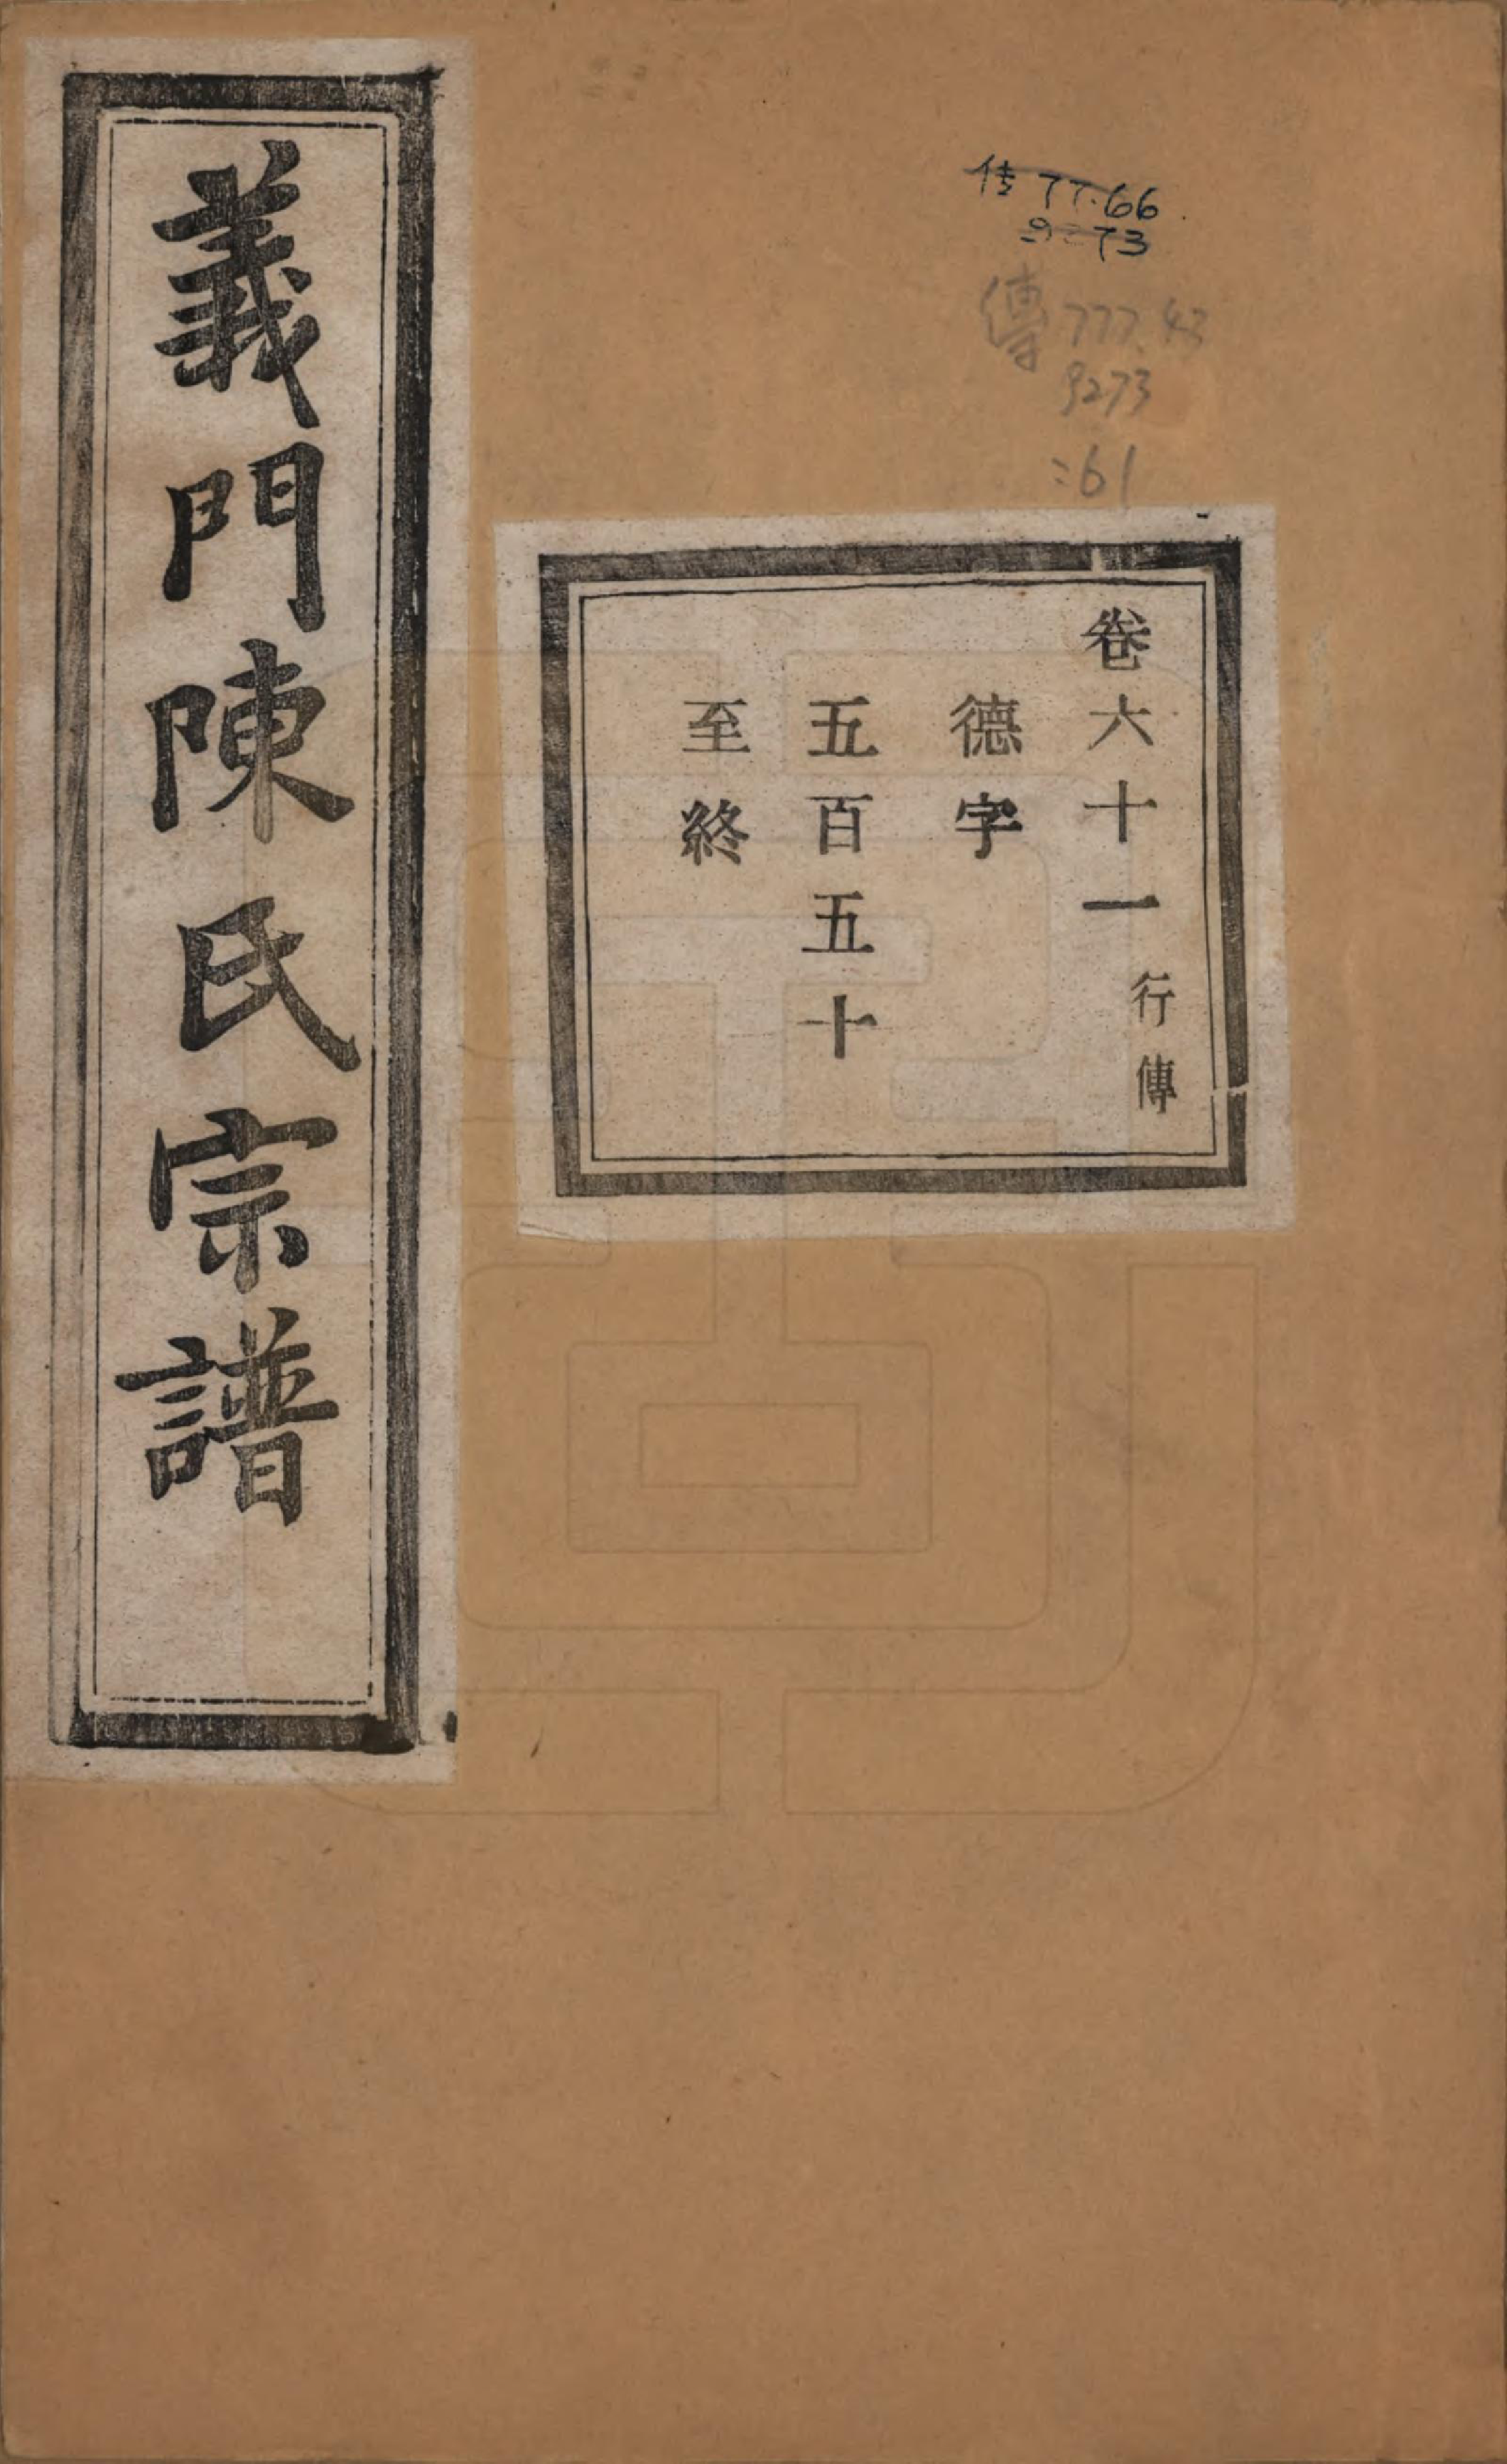 传 77.66
9273
傳 777.43
9273
:61
卷六十一 行傳
德字
五百五十
至終
義門陳氏宗譜